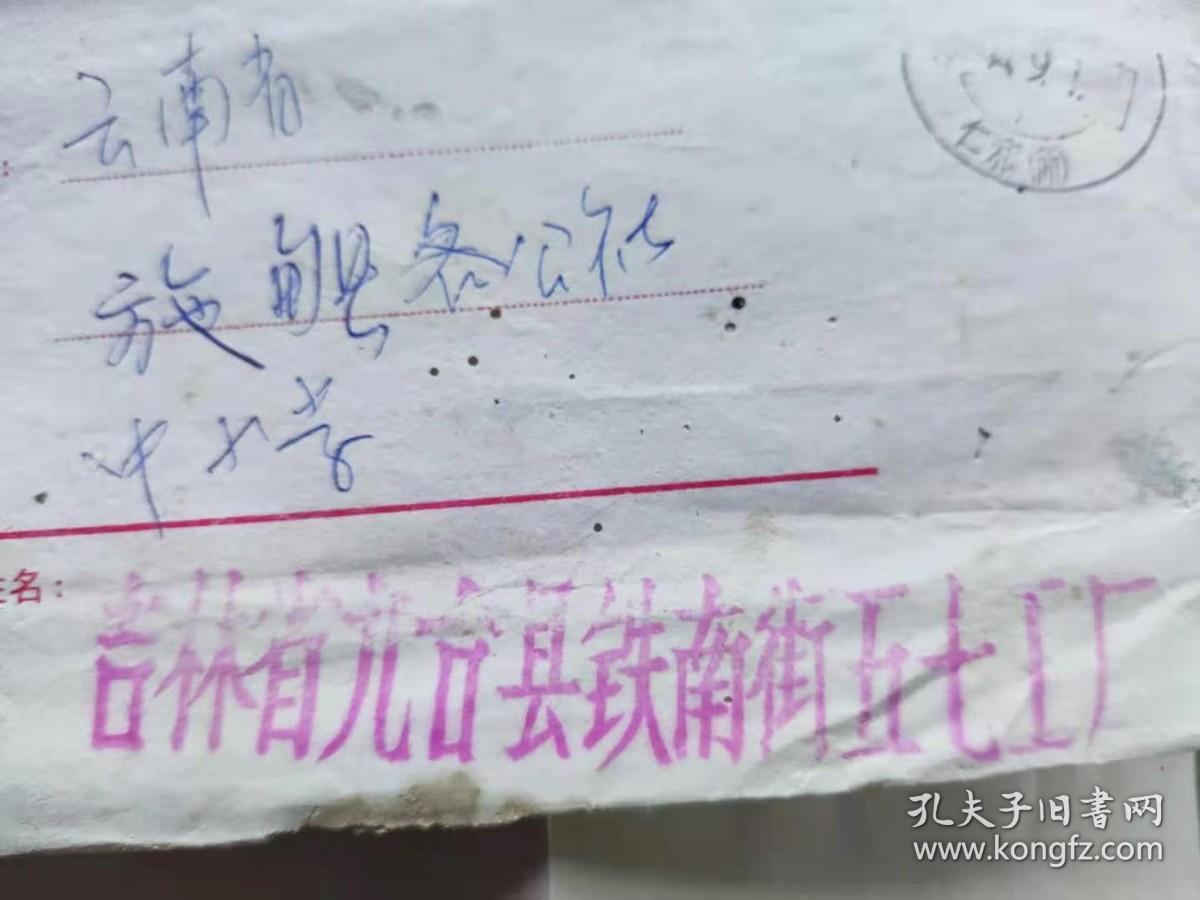 云南省
施甸县各公社
中小学
姓名：
吉林省九台县铁南街五七工厂
孔夫子旧书网
www.kongfz.com